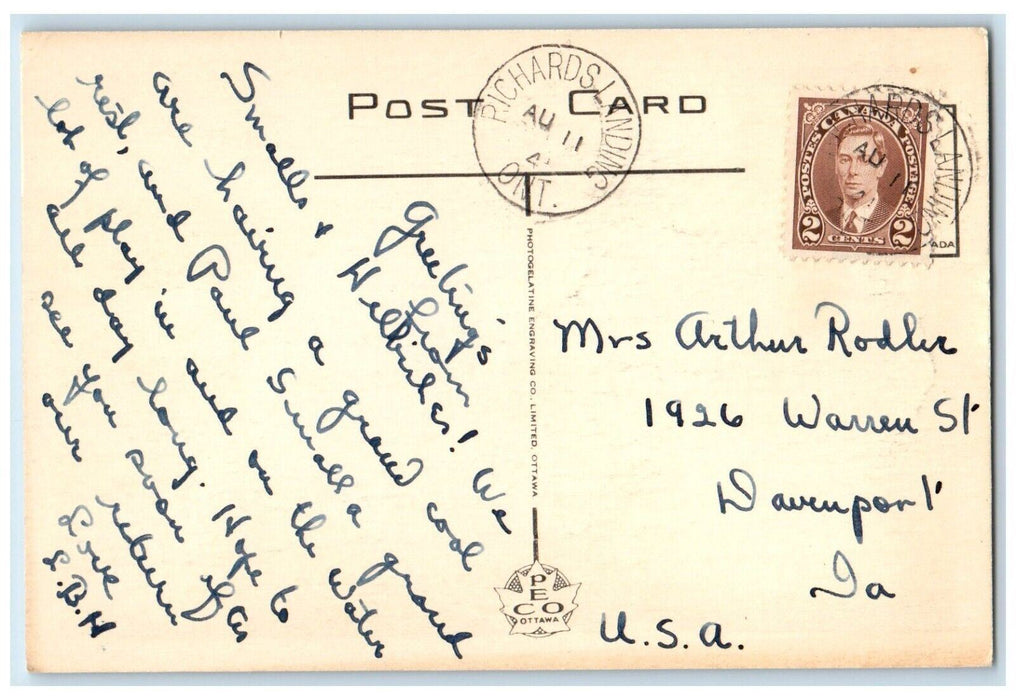 POST CARD
RICHARDS LANDING
AU 11
4
ONT.
POSTES CANADA POSTAGE
2 CENTS 2
ARDS LANDING
AU 1
ADA
Greetings from
Smalls & Helbil
We
are having a grand cool
rest, and Paul Small a grand
lot of play in and on the water
all day long. Hope to
see you soon after
our return
Love
L.B.H
PHOTOGELATINE ENGRAVING CO., LIMITED, OTTAWA
PECO
OTTAWA
Mrs Arthur Rodler
1926 Warren St
Davenport
Ia
U.S.A.